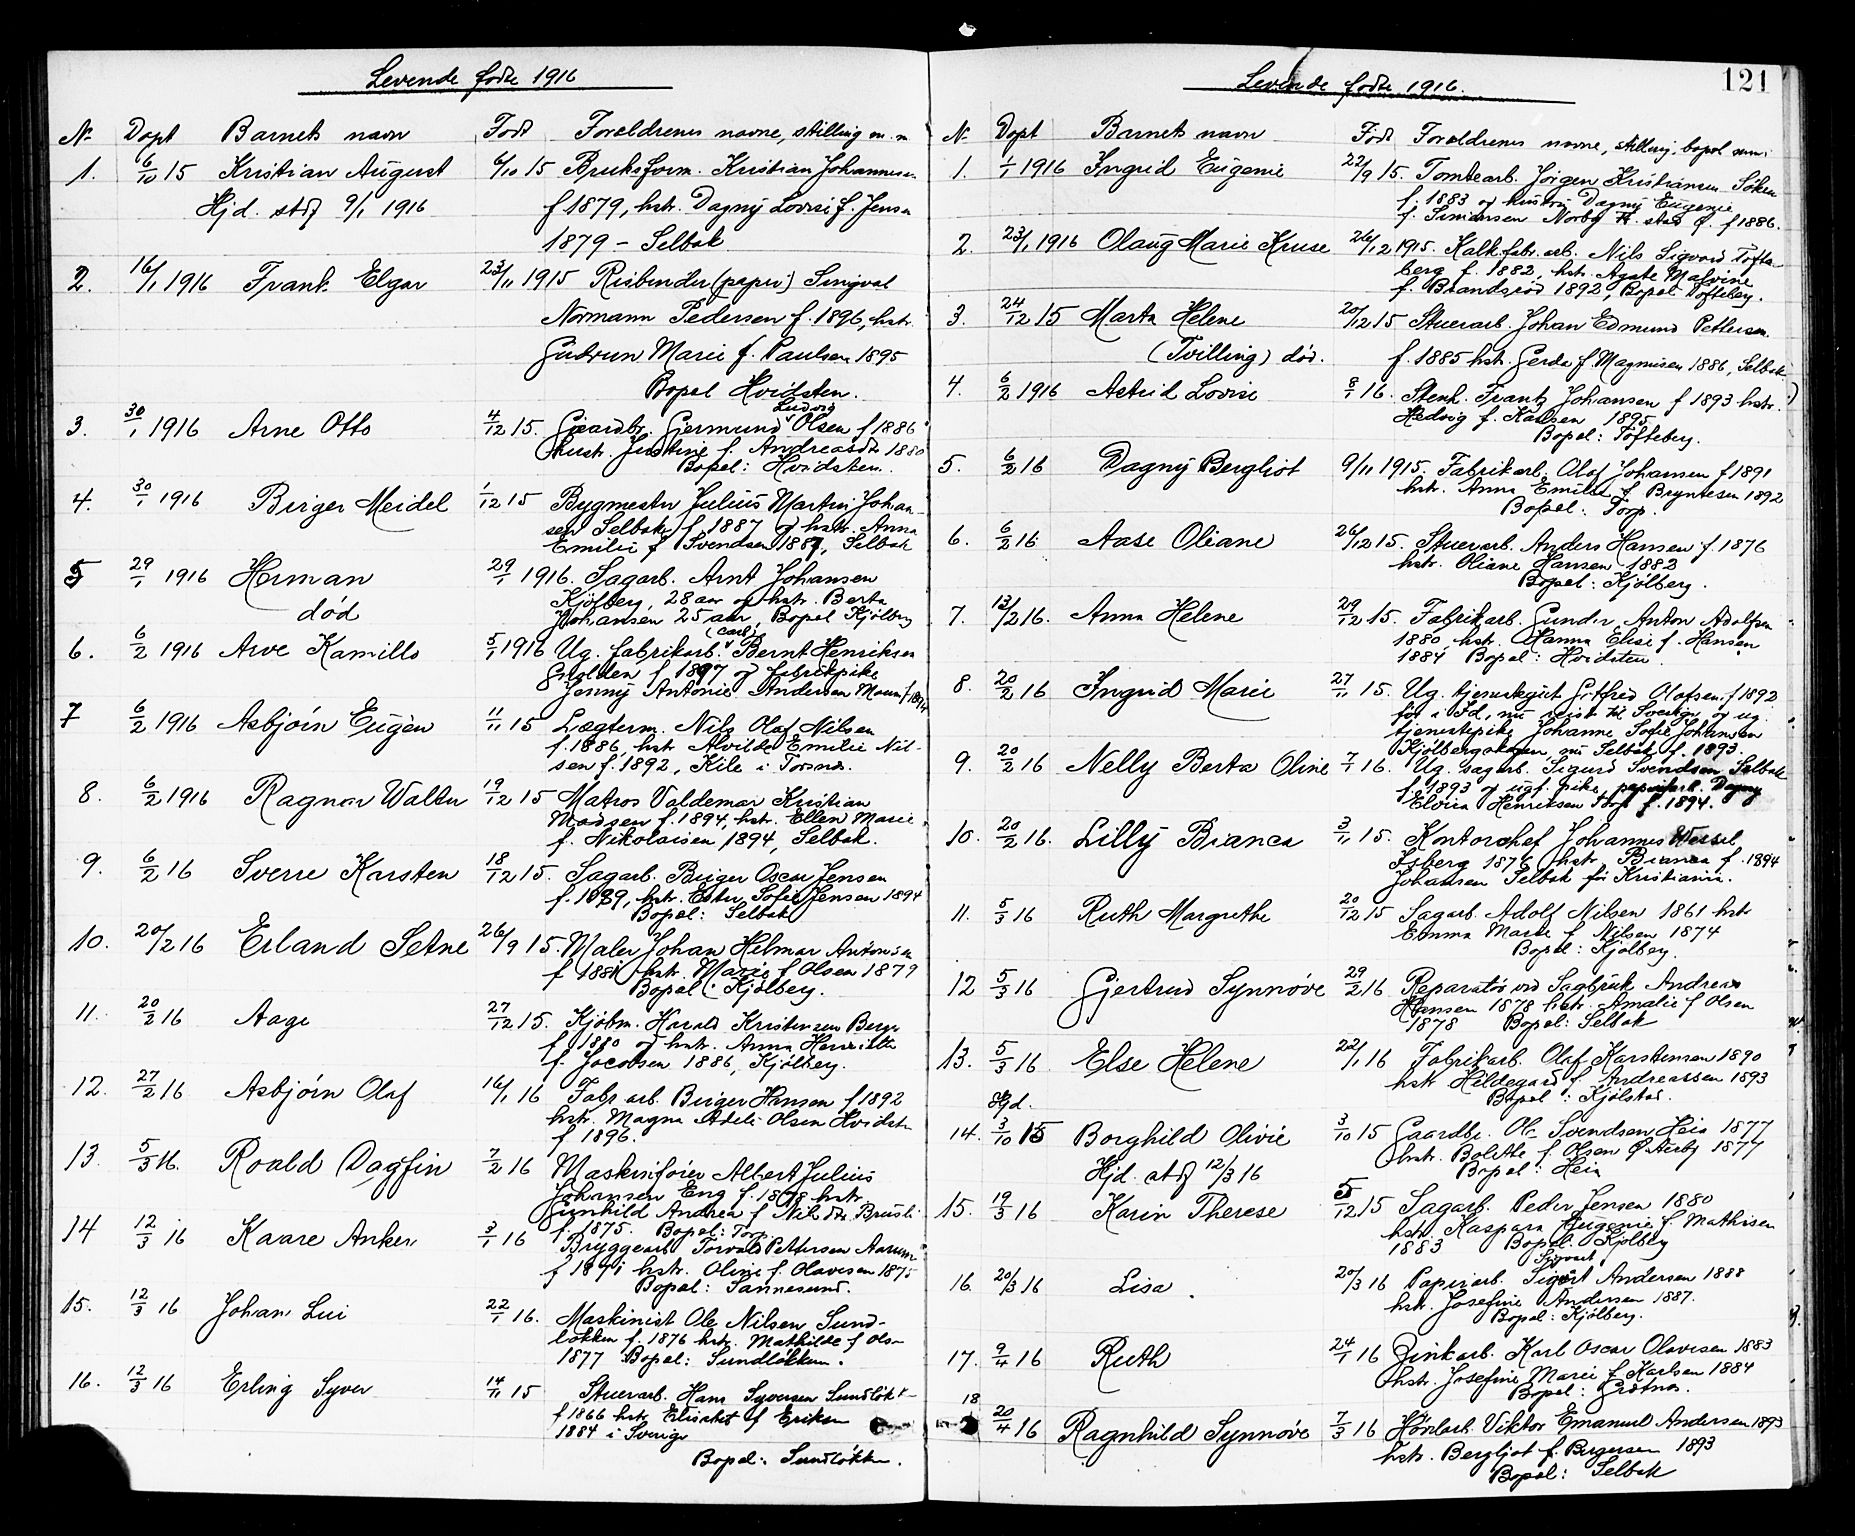 Levende fødte 1916
Nr. Døpt Barnets navn Født Forældrenes navne, stilling m. m
1. 6/10 15 Kristian August 6/10 15 Bruksform. Kristian Johannesen
Hjd. stdf 9/1 1916 f 1879, hstr. Dagny Lovise f. Jensen
1879 - Selbak
2. 16/1 1916 Frank Elgar 23/11 1915 Risbinder (papir) Singval
Normann Pedersen f. 1896, hstr.
Gudrun Marie f. Paulsen 1895
Bopel Hvidsten.
Ludvig
3. 30/1 1916 Arne Otto 4/12 15. Gaardbr. Gjermund Olsen f 1886
hustr. Justine f. Andreasdtr 1880
Bopel: Hvidsten.
4. 30/1 1916 Birger Meidel 1/12 15 Bygmester Julius Martin Johan-
sen Selbak f. 1887 og hstr. Anna
Emilie f. Svendsen 1887, Selbak
5 29/1 1916 Herman 29/1 1916. Sagarb. Arnt Johansen
Kjølberg, 28 aar og hstr. Berta
død Johansen 25 aar, Bopel Kjølberg
(Carl)
6. 6/2 1916 Arve Kamillo 5/1 1916 Ug. fabrikarb. Bernt Henriksen
f 1897 og fabrikpike
Jenny Antonie Andersen Moum f 1894
7 6/2 1916 Asbjørn Eugen 11/11 15 Lægterm. Nils Olaf Nilsen
f. 1886, hstr Alvilde Emilie Nil-
sen f. 1892, Kile i Torsnæs.
8. 6/2 1916 Ragnar Walter 19/12 15 Matros Valdemar Kristian
Madsen f. 1894, hstr. Ellen Marie
f. Nikolaisen 1894, Selbak.
9. 6/2 16 Sverre Karsten 18/12 15. Sagarb. Birger Oscar Jensen
f. 1889, hstr. Ester Sofie Jensen 1894
Bopel: Selbak
10. 20/2 16 Erland Setne 26/9 15. Maler Johan Hilmar Antonsen
f 1881 hstr. Marie f. Olsen 1879
Bopel: Kjølberg.
11. 20/2 16 Aage 27/12 15. Kjøbm. Harald Kristensen Berge
f 1880 og hstr. Anna Henriette
f. Jacobsen 1886, Kjølberg.
12. 27/2 16 Asbjørn Olaf 16/1 16 Fabr arb. Birger Hansen f 1892
hstr. Magna Adele Olsen Hvidsten
f 1896.
13. 5/3 16. Roald Dagfin 7/2 16 Maskinfører Albert Julius
Johansen Eng f. 1878 hstr.
Gunhild Andrea f Nilsdtr
f. 1875. Bopel: Torp
14 12/3 16 Kaare Anker 3/1 16 Bryggearb Torvald Pettersen Aarum
f 1871 hstr. Oline f. Olavesen 1875
Bopel: Sannesund.
15. 12/3 16 Johan Lui 22/1 16. Maskinist Ole Nilsen Sund-
løkken f. 1876 hstr. Mathilde f Olsen
1877 Bopel: Sundløkken.
16. 12/3 16 Erling Syver 14/11 15 Stuerarb. Hans Syversen Sundløkk-
f 1866 hstr Elisabet f Eriksen
1884 i Sverige
Bopel: Sundløkken.
121
Levende fødte 1916.
Nr. Døpt Barnets navn Født Forældrenes navne, stilling, bopel
1. 1/1 1916 Ingrid Eugenie 22/9 15. Tomtearb. Jørgen Kristiansen Søken
f. 1883 og hustru Dagny Eugenie
f. Simensen Norby stad f. f 1886.
2. 23/1 1916 Olaug Marie Kruse 26/12 1915. Kalkfabr. arb. Nils Sigvard Tofte-
berg f. 1882, hstr. Agate Malvine
f. Brandsrød 1892, Bopel Tofteberg.
3. 24/12 15 Marta Helene 20/12 15 Stuerarb. Johan Edmund Pettersen
(Tvilling) død. f. 1885 hstr. Gerda f. Magnusen 1886, Selbak
4. 6/2 1916 Astrid Lovise 8/1 16. Stenh. Frantz Johansen f 1893 hstr.
Hedvig f. Karlsen 1895
Bopel: Tofteberg.
5. 6/2 16 Dagny Bergliot 9/11 1915. Fabrikarb. Olaf Johansen f 1891
hstr. Anna Emilie f. Bryntesen 1892
Bopel: Torp.
6. 6/2 16 Aase Oliane 26/12 15. Stuerarb. Anders Hansen f. 1876
hstr. Oliane Hansen 1883
Bopel: Kjølberg.
7. 13/2 16. Anna Helene 29/12 15. Fabrikarb. Gunder Anton Adolfsen
1880, hstr. Hanna Elise f. Hansen
1884 Bopel: Hvidsten.
8. 20/2 16 Ingrid Marie 27/11 15. Ug. tjenestegut Gotfred Olafsen f 1892
før i Id, nu reist til Sverige, og ug.
tjenestepike Johanne Sofie Johansen
Kjølbergskogen, nu Selbak f. 1893.
9. 20/2 16 Nelly Berta Oline 7/1 16. Ug. sagarb. Sigurd Svendsen Selbak
f. 1893 og ugf. pike, papirfark. Dagny
Elvira Henriksen Torp f. 1894.
10. 20/2 16. Lilly Bianca 3/11 15. Kontorchef Johannes Wessel
Isberg 1876 hstr. Bianca f. 1894
Johansen Selbak før Kristiania.
11. 5/3 16 Ruth Margrethe 20/12 15 Sagarb. Adolf Nilsen 1861 hstr
Emma Marie f Nilsen 1874
Bopel: Kjølberg.
12 5/3 16 Gjertrud Synnøve 29/2 16 Reparatør ved Sagbruk Andreas
Hansen 1878 hstr. Amalie f Olsen
1878 Bopel: Selbak
13. 5/3 16 Else Helene 22/1 16 Fabrikarb. Olaf Karstensen 1890
hstr Hildegard f. Andreassen 1893
Bopel: Kjølstad.
Hjd.
14. 3/10 15 Borghild Olivie 3/10 15 Gaardbr. Ole Svendsen Heia 1877
hstr. Bolette f. Olsen Østerby 1877
Hjd. stdf 12/3 16 Bopel: Heia
15. 19/3 16 Karin Therese 5/12 15 Sagarb. Peder Jensen 1880
hstr. Kaspara Eugenie f. Mathisen
1883 Bopel: Kjølberg
Sigvart
16. 20/3 16 Lisa 20/3 16 Papirarb. Sigurt Andersen 1888
hstr. Josefine Andersen 1887.
Bopel: Kjølberg.
17. 9/4 16 Ruth 24/1 16 Zinkarb. Karl Oscar Olavesen 1883
hstr. Josefine Marie f Karlsen 1884
Bopel:
18 20/4 16 Ragnhild Synnøve 7/3 16 Viktor Emanuel Andersen 1893
hstr. Bergliot f. Birgersen 1893
Bopel: Selbak